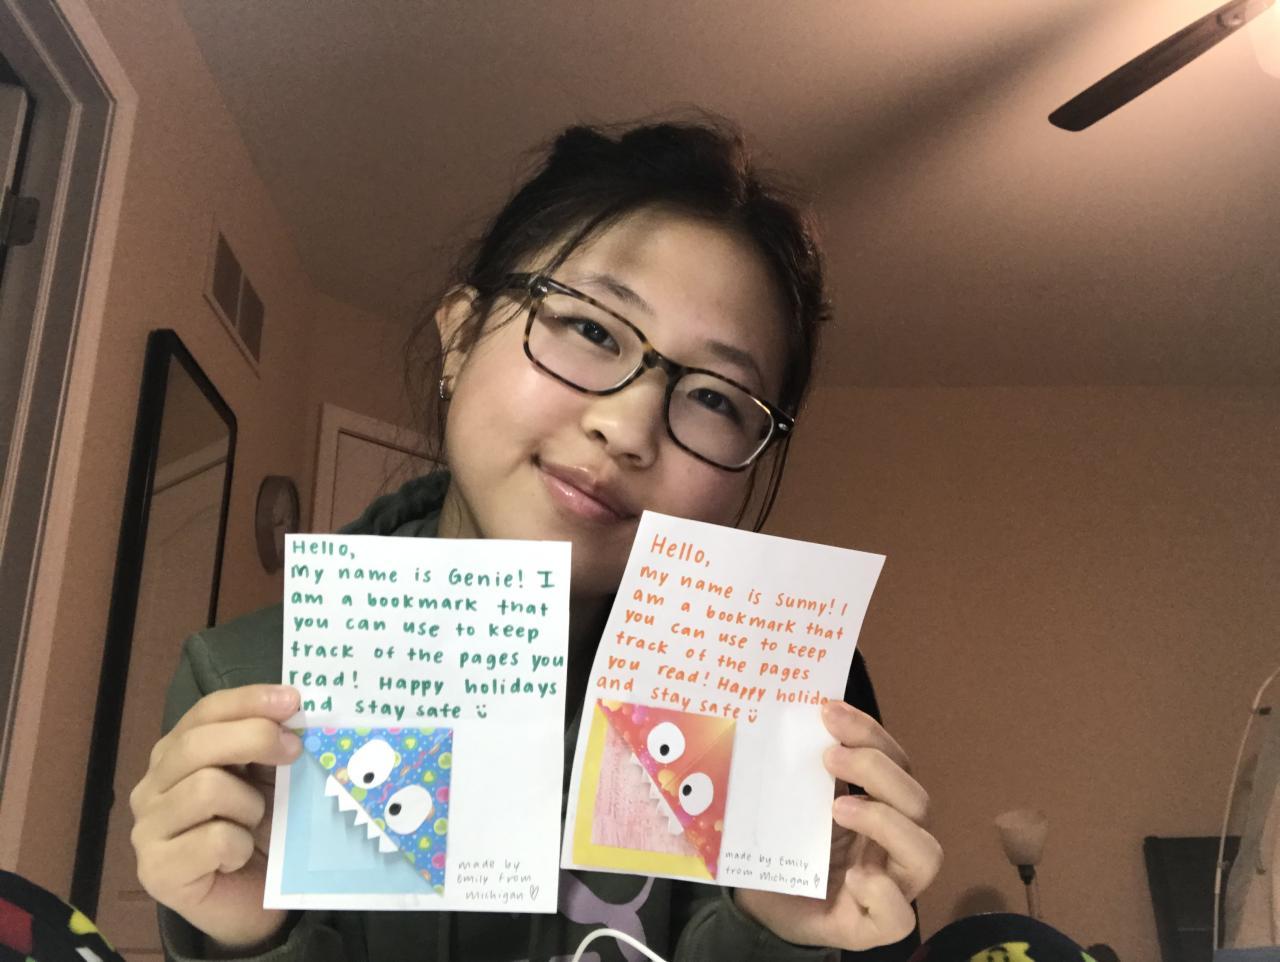 Hello,
My name is Genie! I
am a bookmark that
you can use to keep
track of the pages you
read! Happy holidays
and stay safe ü
made by
Emily from
Michigan ♡
Hello,
my name is Sunny! I
am a bookmark that
you can use to keep
track of the pages
you read! Happy holida
and stay safe ü
made by Emily
from Michigan ♡